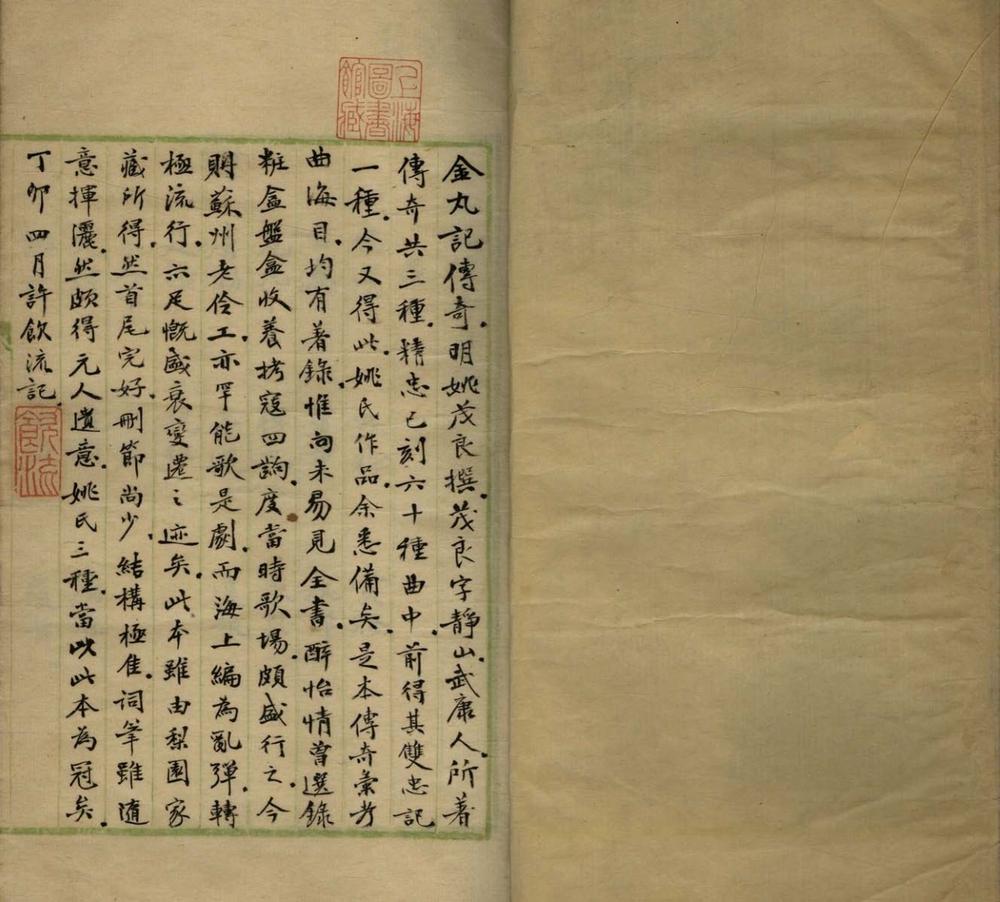 上海圖書館藏
金丸記傳奇明姚茂良撰茂良字靜山武康人所著
傳奇共三種精忠已刻六十種曲中前得其雙忠記
一種今又得此姚氏作品余悉備矣是本傳奇彙考
曲海目均有著錄惟向未易見全書醉怡情曾選錄
粧盒盤盒收養拷寇四齣度當時歌場頗盛行之今
則蘇州老伶工亦罕能歌是劇而海上編為亂彈轉
極流行亦足慨盛衰變遷之迹矣此本雖由梨園家
藏所得然首尾完好刪節尚少結構極佳詞筆雖隨
意揮灑然頗得元人遺意姚氏三種當以此本為冠矣
丁卯四月許飲流記
飲流